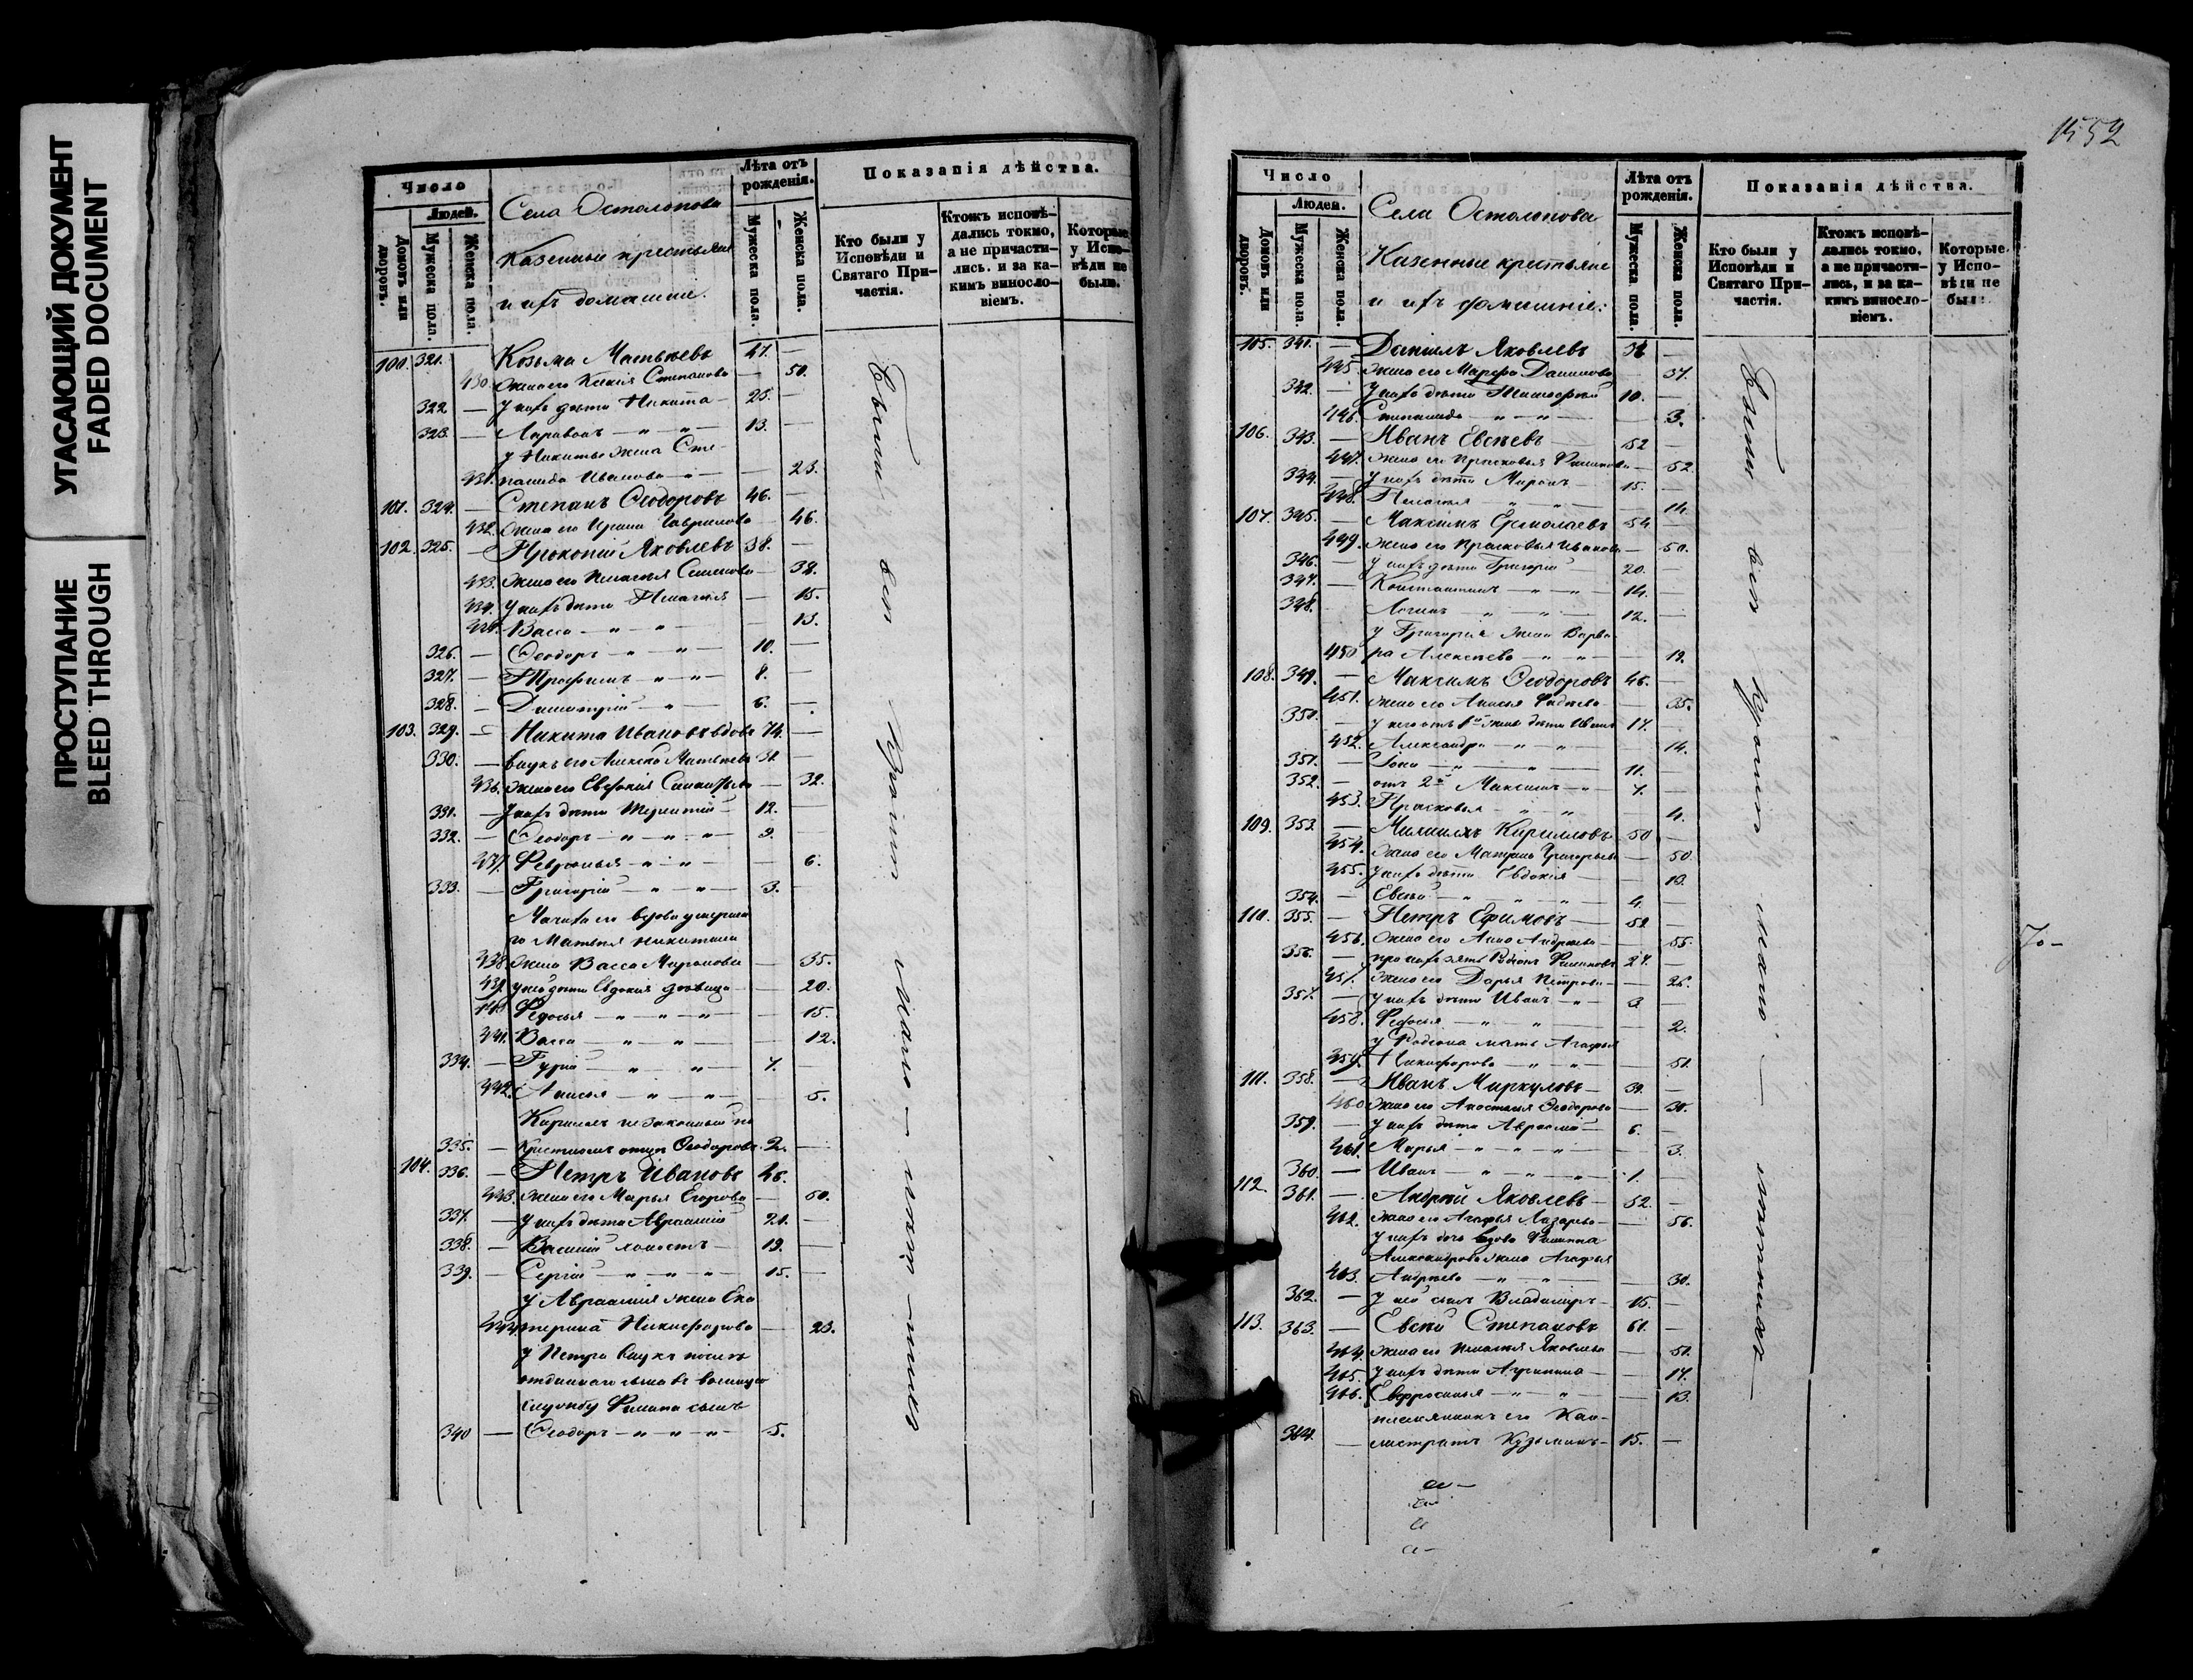 УГАСАЮЩИЙ ДОКУМЕНТ
FADED DOCUMENT
ПРОСТУПАНИЕ
BLEED THROUGH
Число
Людей.
Домовъ или дворовъ.
Мужеска пола.
Женска пола.
Села Остолопова
Казенные крестьяне
и ихъ домашніе.
Лѣта отъ рожденія.
Мужеска пола.
Женска пола.
Показанія дѣйства.
Кто были у Исповѣди и Святаго Причастія.
Ктожъ исповѣдались токмо, а не причастились. и за какимъ винословіемъ.
Которые у Исповѣди не были.
100. 321. Козьма Матвѣевъ 47. —
430. Жена его Ксенія Степанова — 50.
322 — У нихъ дѣти Никита — 25. —
323. — Ларивонъ — " — " — 13. —
У Никиты жена Сте-
431. панида Иванова — " — — 23.
101. 324. — Степанъ Ѳеодоровъ 46. —
432. Жена его Ирина Гаврилова — 46.
102. 325. — Прокопій Яковлевъ 38. —
433. Жена его Пелагея Семенова — 38.
434. У нихъ дѣти Пелагея — 15.
435. Васса — " — " — 13.
326. — Ѳеодоръ — " — " — 10. —
327. — Трофимъ — " — " — 8. —
328. — Димитрій — " — 6. —
103. 329. — Никита Ивановъ вдовъ 74. —
330. — внукъ его Алексѣй Матвѣевъ 31 —
436. Жена его Евгенія — 32.
331. — У нихъ дѣти Терентій — 12. —
332. — Ѳеодоръ — " — " — " — 9. —
437. Февронья — " — " — — 6.
333. — Григорій — " — " — 3. —
Мачиха его вдова умерша
го Матвѣя Никитина
438. жена Васса Миронова — 35.
439. у нея дѣти Евдокія дѣвица — — 20.
440. Федосья — " — " — " — — 15.
441. Васса — " — " — — 12.
334. — Гурій — " — " — 7. —
442. Анисья — " — " — — 5.
Кириллъ незаконный по
335. — крестномъ отцѣ Ѳеодоровъ. 2. —
104. 336. — Петръ Ивановъ 46. —
443. Жена его Марья Егорова — 50.
337. — У нихъ дѣти Авраамій 21. —
338. — Василій холостъ — 19. —
339. — Сергій — " — " — " — 15. —
У Авраамія жена Ека
444. терина Никифорова — 23.
У Петра внукъ послѣ
отданнаго сына въ военную
службу Филипа сынъ
340 — Ѳеодоръ — " — " — " — 5.
Были всѣ
1552
Число
Людей.
Домовъ или дворовъ.
Мужеска пола.
Женска пола.
Села Остолопова
Казенные крестьяне
и ихъ домашніе:
Лѣта отъ рожденія.
Мужеска пола.
Женска пола.
Показанія дѣйства.
Кто были у Исповѣди и Святаго Причастія.
Ктожъ исповѣдались токмо, а не причастились, и за какимъ винословіемъ.
Которые у Исповѣди не были.
105. 341. — Даніилъ Яковлевъ 38 —
445. Жена его Марфа Данилова — 37.
342. — У нихъ дѣти Тимофей 10. —
446. Степанида — " — " — 3.
106. 343. — Иванъ Евсѣевъ 52 —
447. Жена его Прасковья Филипова — 52.
344. — У нихъ дѣти Миронъ — 15. —
448. Пелагея — " — " — 14.
107. 345. — Максимъ Ермолаевъ 54 —
449. Жена его Прасковья Иванова — 50.
346. — У нихъ дѣти Григорій — 20. —
347. — Константинъ — " — " — 14. —
348. Логинъ " — " — 12. —
У Григорія жена Варва-
450 ра Алексѣева — " — " — — 19.
108. 349. — Максимъ Ѳеодоровъ 45. —
451. Жена его Анисья Фадѣева — 35.
350. — У него отъ 1й жены дѣти Иванъ 17. —
452. Александра — " — " — 14.
351. — Іона — " — " — 11. —
352. — отъ 2й Максимъ — " — 7. —
453. Прасковья — " — " — 4.
109. 353. — Михаилъ Кирилловъ 50 —
454. Жена его Матрена Григорьева — 50.
455. У нихъ дѣти Евдокія — — 13.
354. — Евсѣй — " — " — " — 4. —
110. 355. — Петръ Ефимовъ — 52 —
456. Жена его Анна Андреева — — 55.
356. — при нихъ зять Родіонъ Филиповъ 27. —
457. Жена его Дарья Петрова — — 25.
357. — У нихъ дѣти Иванъ — " — 3 —
458. Федосья — " — " — — 2.
у Родіона мать Агафья
459. Никифорова — " — " — — 51.
111. 358. — Иванъ Меркуловъ — 39. —
460 Жена его Анастасія Ѳеодорова — 30.
359. — У нихъ дѣти Авраамій — 6. —
461. Марья — " — " — " — — 3.
360. — Иванъ — " — " — " — 1. —
112. 361. — Андрей Яковлевъ — 52. —
462. Жена его Агафья Лазарева — — 56.
У нихъ дочь вдова Филиппа
Александрова жена Агафья
463. Андреева — " — " — — 30.
362. — У нея сынъ Владимиръ — 15. —
113. 363. — Евсѣй Степановъ 61. —
464. Жена его Пелагея Яковлева — 51.
465. У нихъ дѣти Агрипина — — 17.
466. Евфросинья — " — " — — 13.
племянникъ его Кал-
364. — листратъ Кузьминъ — 15. —
Были всѣ